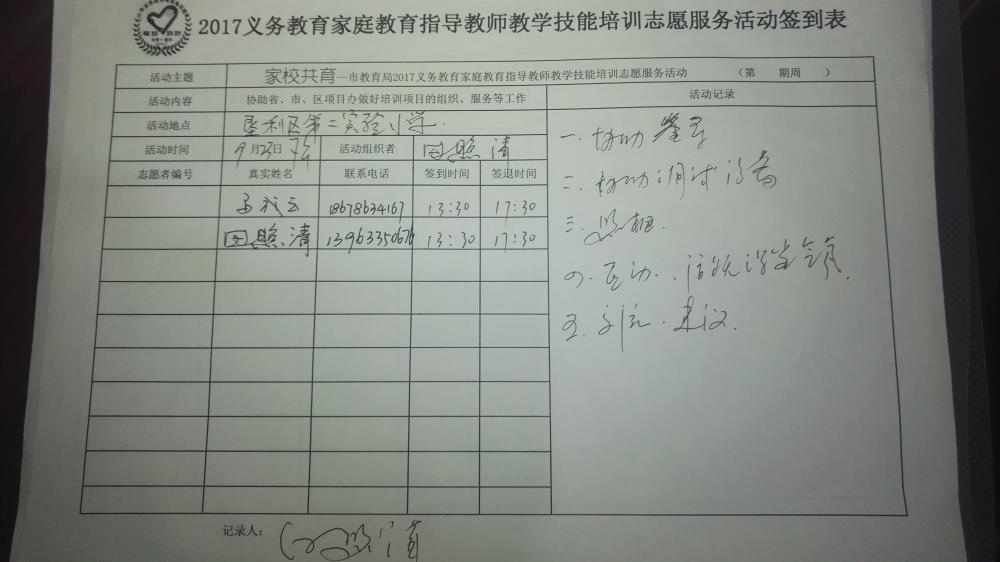 2017义务教育家庭教育指导教师教学技能培训志愿服务活动签到表
活动主题 家校共育—市教育局2017义务教育家庭教育指导教师教学技能培训志愿服务活动 （第 期周 ）
活动内容 协助省、市、区项目办做好培训项目的组织、服务等工作 活动记录
活动地点 垦利区第二实验小学.
活动时间 9月23日 活动组织者 田照清
志愿者编号 真实姓名 联系电话 签到时间 签退时间
18678634167 13:30 17:30
田照清 13963350676 13:30 17:30
一.协助签到
二.协助调试设备
三.照相.
四.互动.活跃课堂气氛.
五.讨论.建议.
记录人： 田照清